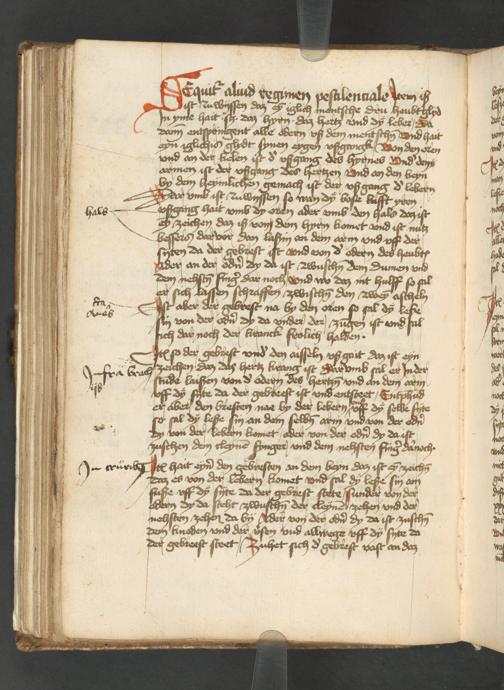 Sequit aliud regimen pestilenciale Item ist
ist zuwyssen daz eyn iglich mentsche dru heubt glyd
in yme hait ist daz hyrn daz hertz vnd dy leber Da
dann entspringent alle odern vß dem mentschen vnd hait
eyn iglichs glydt synen eygen vßganck Von den oren
vnd an der kelen ist der vßgang des hyrnes vnd dem
armen ist der vßgang des hertzen vnd an den beyn
by dem heymlichen gemach ist der vßgang der lebern
dar vmb ist zuwyssen so wan dy boße lufft yren
hals
vßgang hait vmb dy oren ader vmb den hals daz ist
eyn zeychen daz iß von dem hyrn komet vnd ist nutz
bessers darvor dan laßin an dem arm vnd vff der
syten da der gebrest ist vnd von der odern des heubts
ader an der odern dy da ist zwuschen dem dumen vnd
dem nehsten finger dar noch vnd wo daz nit hulff so sal
er sich lassen schreffen zwuschen den zweyn achseln
ist aber der gebrest na by den oren so sal dy leße
sin von der odern dy da vnder der zungen ist vnd sal
sich dar noch der kranck frolich halden
Infra brach
Item so der gebrest vnder den achseln vßgait daz ist eyn
zeichen daz daz hertz kranck ist Darvmb sal er in der
stunde laißen von der odern des hertzen vnd an dem arm
vff dy syte da der gebrest ist vnd entsteet
er aber den bresten nae by der lebern vff dy selbe syte
so sal dy leße sin an dem selben arm vnd von der odern
dy von der lebern komet ader von der odern dy da ist
zuschen dem cleynen finger vnd dem nehsten finger darnoch
In cruribus
Item hait eyner den gebresten an dem beyn daz ist eyn zeichen
daz es von der lebern komet vnd sal dy leße sin am
fuße vff dy syte da der gebrest stete sunder von der
odern dy da stehet zwuschen der cleynen zehen vnd der
nehsten zehen da by ader von der odern dy da ist zuschen
dem knoden vnd der versen vnd allwege vff dy syte da
der gebrest steet Zuhet sich der gebrest vast an daz